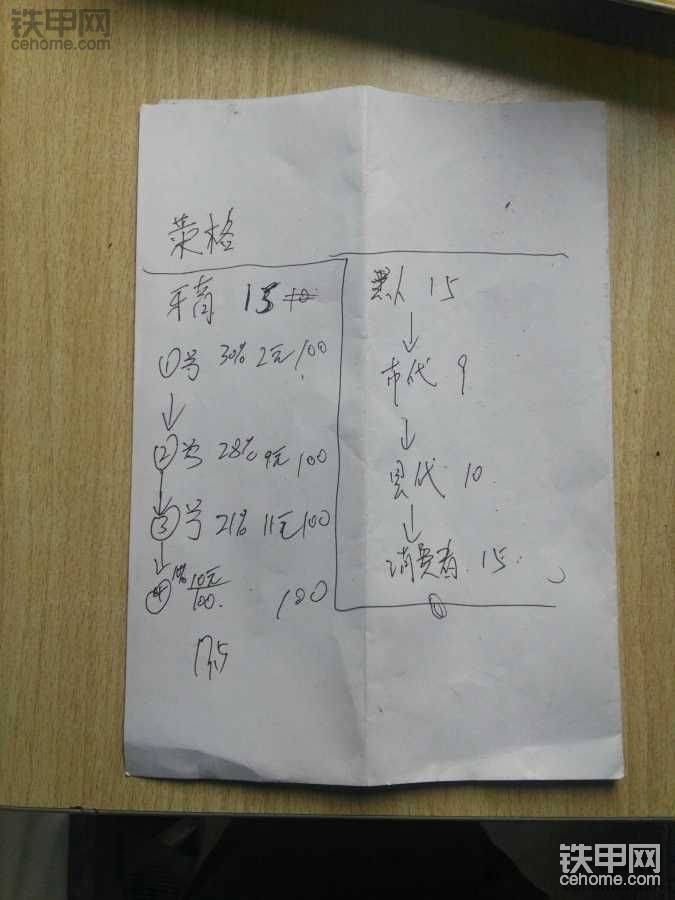 铁甲网
cehome.com
荣格
牙膏 15
①号 30% 2元 100
↓
②号 28% 9元 100
↓
③号 21% 11元 100
↓
④ 1% 10元/100. 100
默认 15
↓
市代 9
↓
县代 10
↓
消费者 15.
铁甲网
cehome.com